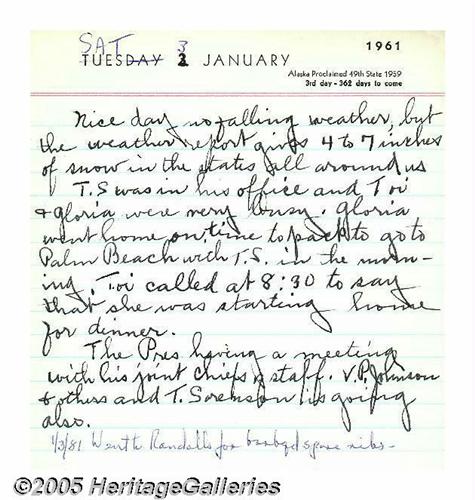 SAT 3
TUESDAY 3 JANUARY 1961
Alaska Proclaimed 49th State 1959
3rd day - 362 days to come
Nice day no falling weather, but
the weather report gives 4 to 7 inches
of snow in the states all around us
T.S was in his office and Toi
& Gloria were very busy. Gloria
went home on time to pack to go to
Palm Beach with T.S. in the morn-
ing. Toi called at 8:30 to say
that she was starting home
for dinner.
The Pres having a meeting
with his joint chiefs of staff. V.P. Johnson
& others and T. Sorenson is going
also.
1/3/81 Went to Randalls for barbqd spare ribs-
©2005 HeritageGalleries